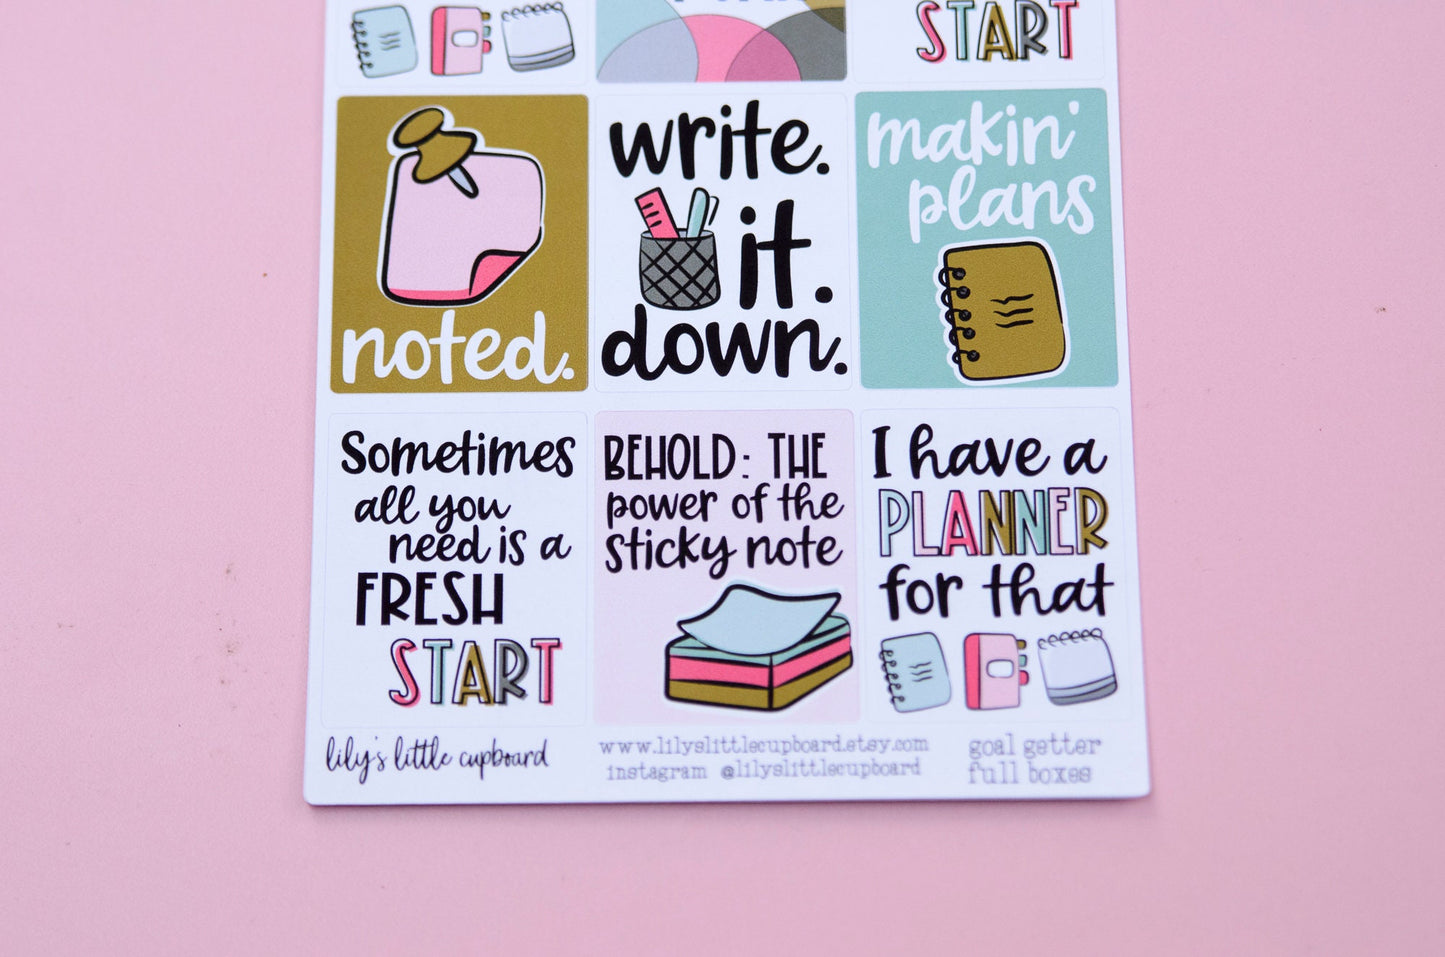 START
noted.
write.
it.
down.
makin'
plans
Sometimes
all you
need is a
FRESH
START
BEHOLD: THE
power of the
sticky note
I have a
PLANNER
for that
lily's little cupboard
www.lilyslittlecupboard.etsy.com
instagram @lilyslittlecupboard
goal getter
full boxes